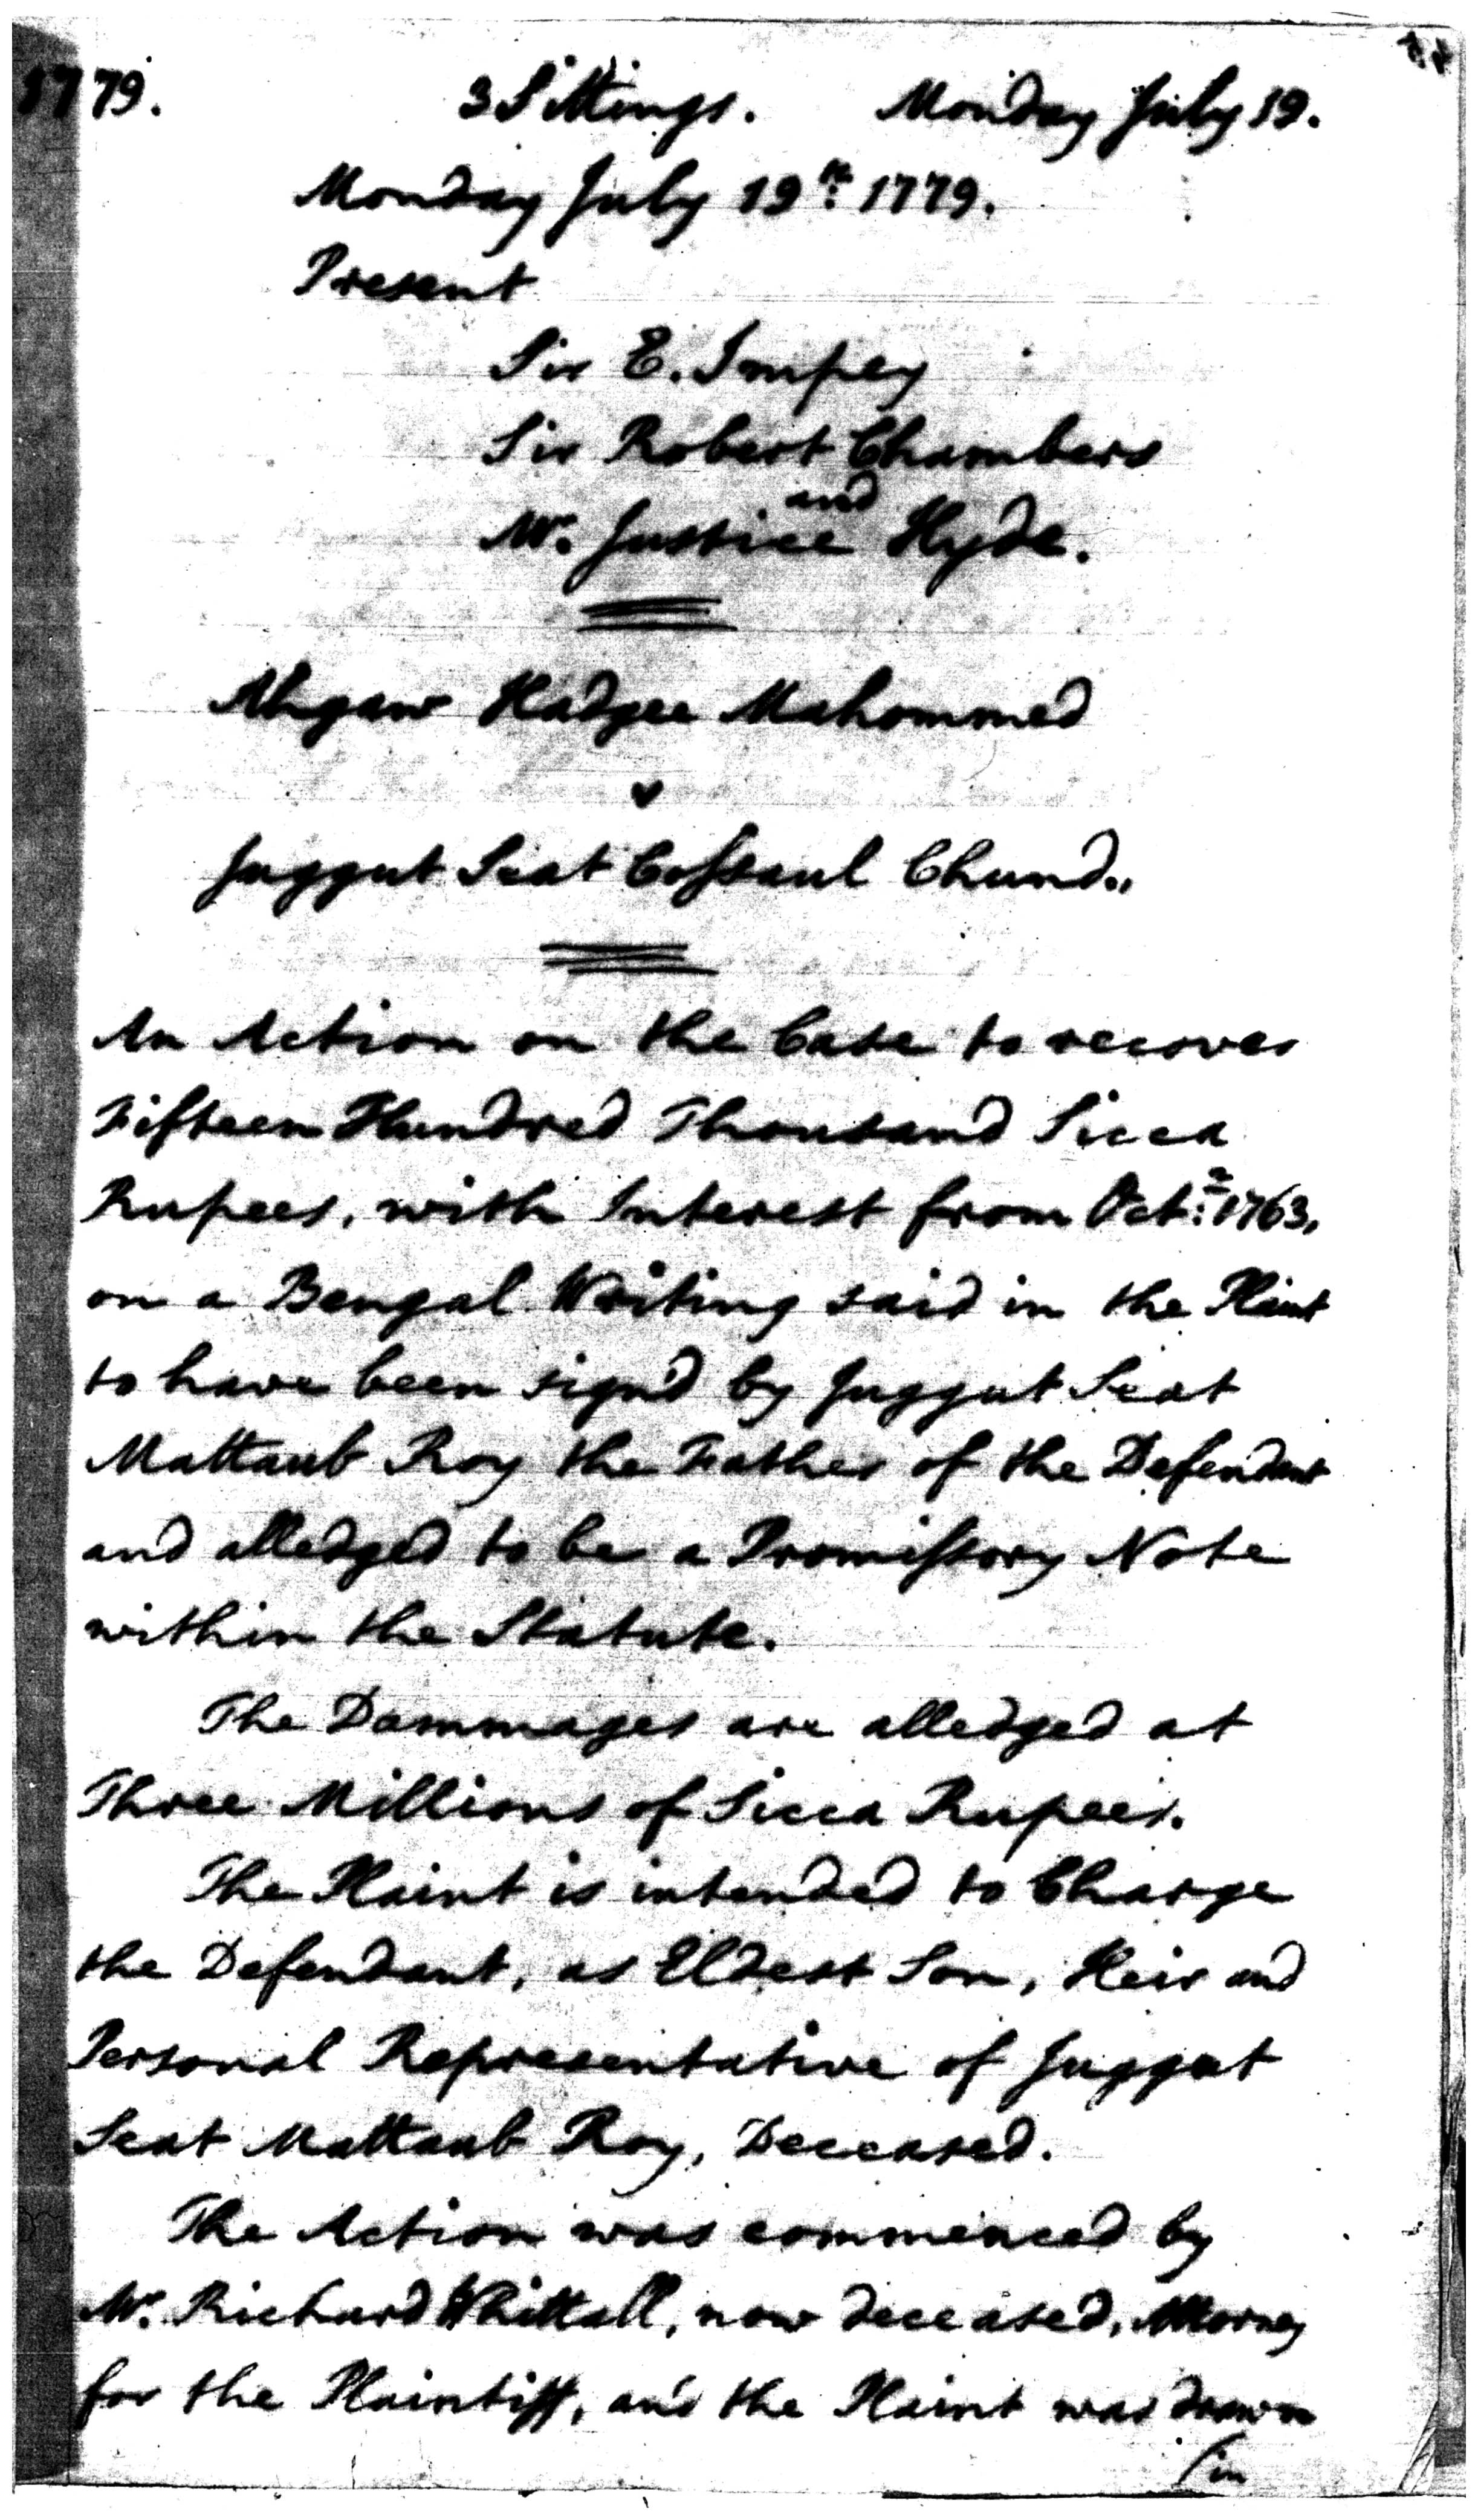 1779. 3 Sittings. Monday July 19.
Monday July 19th 1779.
Present
Sir E. Impey
Sir Robert Chambers
and
Mr. Justice Hyde.
Ahgaw Hadgee Mahommed
v
Juggut Seat Cossaul Chund.
An Action on the Case to recover
Fifteen Hundred Thousand Sicca
Rupees, with Interest from Octr. 1763,
on a Bengal Writing said in the Plaint
to have been sign'd by Juggut Seat
Mattaub Roy the Father of the Defendant
and alledged to be a Promissory Note
within the Statute.
The Dammages are alledged at
Three Millions of Sicca Rupees.
The Plaint is intended to Charge
the Defendant, as Eldest Son, Heir and
Personal Representative of Juggut
Seat Mattaub Roy, Deceased.
The Action was commenced by
Mr. Richard Whittall, now deceased, Attorney
for the Plaintiff, and the Plaint was drawn
(in